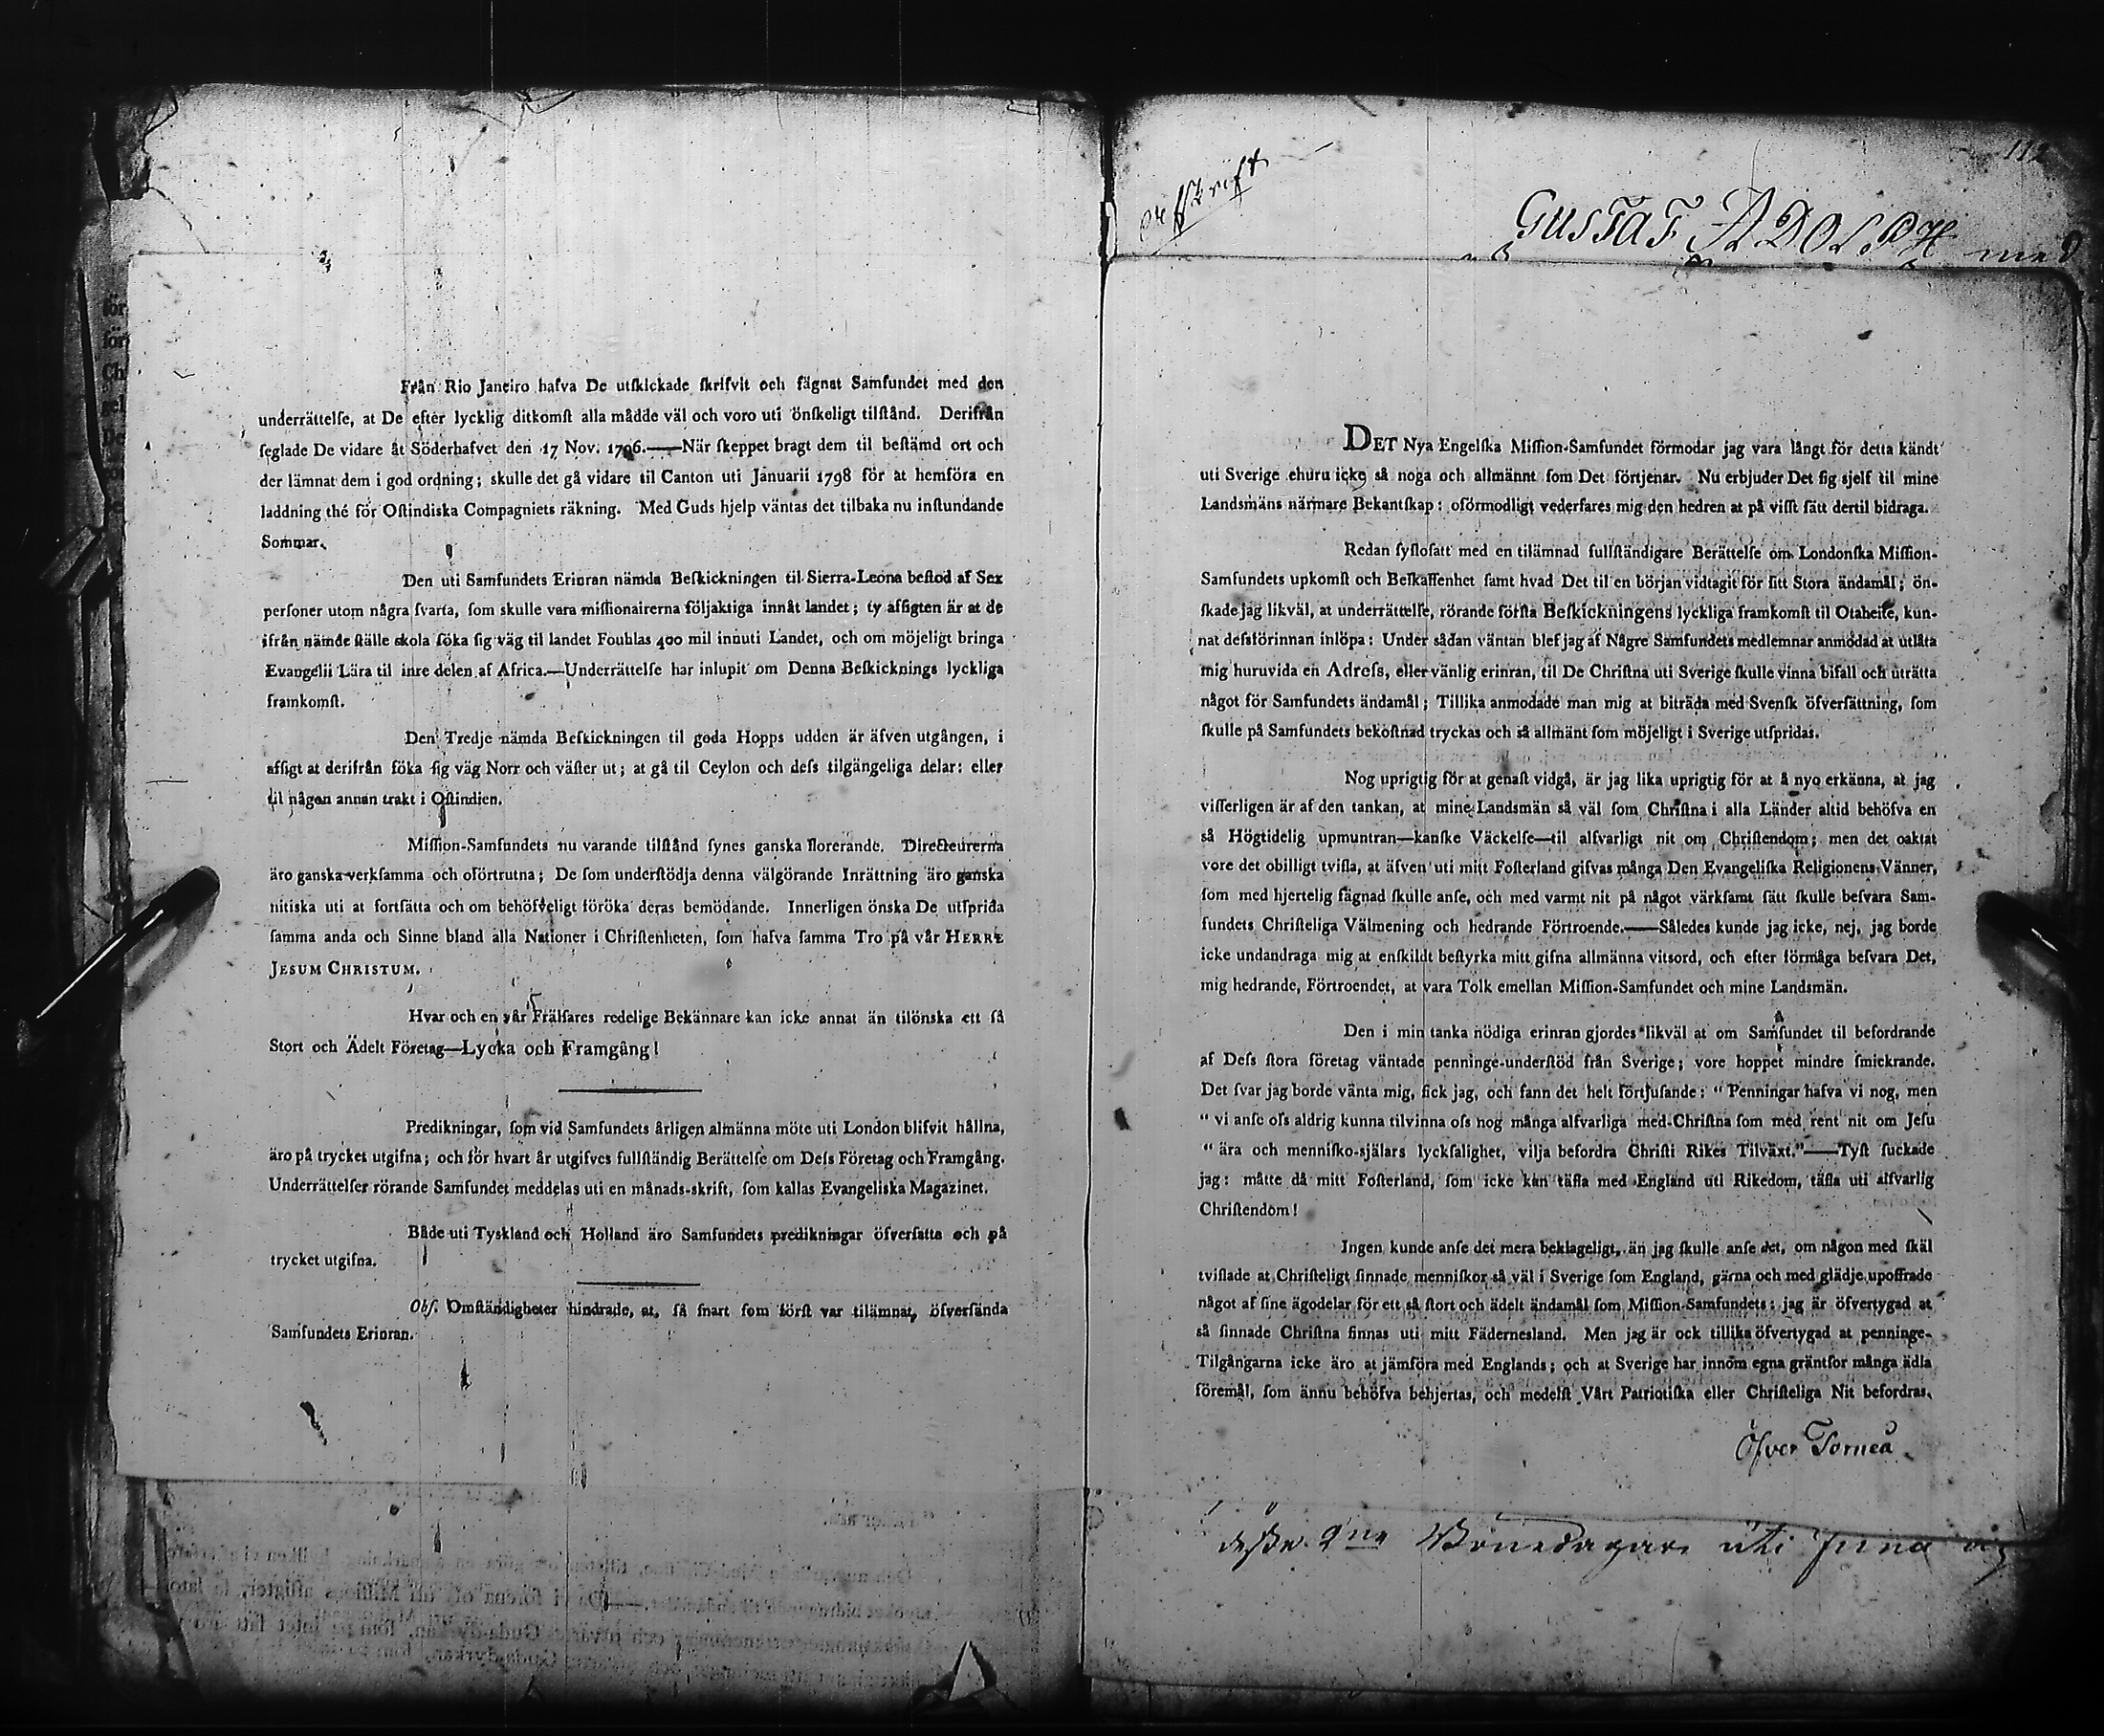 Från Rio Janeiro hafva De utſkickade ſkrifvit och fägnat Samfundet med den
underrättelſe, at De efter lycklig ditkomſt alla mådde väl och voro uti önſkeligt tilſtånd. Derifrån
ſeglade De vidare åt Söderhafvet den 17 Nov. 1796.——När ſkeppet bragt dem til beſtämd ort och
der lämnat dem i god ordning; skulle det gå vidare til Canton uti Januarii 1798 för at hemföra en
laddning thé för Oſtindiska Compagniets räkning. Med Guds hjelp väntas det tilbaka nu inſtundande
Sommar.
Den uti Samfundets Erinran nämda Beſkickningen til Sierra-Leona beſtod af Sex
perſoner utom några ſvarta, ſom skulle vara miſſionairerna följaktiga innåt landet; ty affigten är at de
ifrån nämde ſtälle skola ſöka ſig väg til landet Fouhlas 400 mil innuti Landet, och om möjeligt bringa
Evangelii Lära til inre delen af Africa.—Underrättelſe har inlupit om Denna Beſkicknings lyckliga
framkomſt.
Den Tredje nämda Beſkickningen til goda Hopps udden är äfven utgången, i
affigt at derifrån ſöka ſig väg Norr och väſter ut; at gå til Ceylon och deſs tilgängeliga delar: eller
til någon annan trakt i Oſtindien.
Miſſion-Samfundets nu varande tilſtånd ſynes ganska florerande. Directeurerna
äro ganska verkſamma och oförtrutna; De ſom underſtödja denna välgörande Inrättning äro ganska
nitiska uti at fortſätta och om behöfveligt föröka deras bemödande. Innerligen önska De utſprida
ſamma anda och Sinne bland alla Nationer i Chriſtenheten, ſom hafva ſamma Tro på vår HERRE
JESUM CHRISTUM.
Hvar och en vår Frälſares redelige Bekännare kan icke annat än tilönska ett ſå
Stort och Ädelt Företag—Lycka och Framgång!
Predikningar, ſom vid Samfundets årligen almänna möte uti London blifvit hållna,
äro på trycket utgifna; och för hvart år utgifves fullſtändig Berättelſe om Deſs Företag och Framgång.
Underrättelſer rörande Samfundet meddelas uti en månads-skrift, ſom kallas Evangeliska Magazinet.
Både uti Tyskland och Holland äro Samfundets predikningar öfverſatta och på
trycket utgifna.
Obſ. Omſtändigheter hindrade, at, ſå ſnart ſom förſt var tilämnat, öfverſända
Samfundets Erinran.
Afſkrift
112
GUSTAF ADOLPH med
DET Nya Engelſka Miſſion-Samfundet förmodar jag vara långt för detta kändt
uti Sverige ehuru icke så noga och allmännt ſom Det förtjenar. Nu erbjuder Det ſig sjelf til mine
Landsmäns närmare Bekantſkap: oförmodligt vederfares mig den hedren at på viſſt ſätt dertil bidraga.
Redan ſyſloſatt med en tilämnad fullſtändigare Berättelſe om Londonſka Miſſion-
Samfundets upkomſt och Beſkaffenhet ſamt hvad Det til en början vidtagit för ſitt Stora ändamål; ön-
ſkade jag likväl, at underrättelſe, rörande förſta Beſkickningens lyckliga framkomſt til Otaheite, kun-
nat deſsförinnan inlöpa: Under sådan väntan blef jag af Någre Samfundets medlemnar anmodad at utlåta
mig huruvida en Adreſs, eller vänlig erinran, til De Chriſtna uti Sverige ſkulle vinna bifall och uträtta
något för Samfundets ändamål; Tillika anmodade man mig at biträda med Svenſk öfverſättning, ſom
ſkulle på Samfundets bekoſtnad tryckas och så allmänt ſom möjeligt i Sverige utſpridas.
Nog uprigtig för at genaſt vidgå, är jag lika uprigtig för at å nyo erkänna, at jag
viſſerligen är af den tankan, at mine Landsmän så väl ſom Chriſtna i alla Länder altid behöfva en
så Högtidelig upmuntran—kanſke Väckelſe—til alfvarligt nit om Chriſtendom; men det oaktat
vore det obilligt tviſla, at äfven uti mitt Foſterland gifvas många Den Evangeliſka Religionens Vänner,
ſom med hjertelig fägnad ſkulle anſe, och med varmt nit på något värkſamt ſätt ſkulle beſvara Sam-
fundets Chriſteliga Välmening och hedrande Förtroende.——Således kunde jag icke, nej, jag borde
icke undandraga mig at enſkildt beſtyrka mitt gifna allmänna vitsord, och efter förmåga beſvara Det,
mig hedrande, Förtroendet, at vara Tolk emellan Miſſion-Samfundet och mine Landsmän.
Den i min tanka nödiga erinran gjordes likväl at om Samfundet til befordrande
af Deſs ſtora företag väntade penninge-underſtöd från Sverige; vore hoppet mindre ſmickrande.
Det ſvar jag borde vänta mig, fick jag, och fann det helt förtjuſande: “ Penningar hafva vi nog, men
“ vi anſe oſs aldrig kunna tilvinna oſs nog många alfvarliga med-Chriſtna ſom med rent nit om Jeſu
“ ära och menniſko-själars lyckſalighet, vilja befordra Chriſti Rikes Tilväxt.”——Tyſt ſuckade
jag: måtte då mitt Foſterland, ſom icke kan täfla med England uti Rikedom, täfla uti alfvarlig
Chriſtendom!
Ingen kunde anſe det mera beklageligt, än jag ſkulle anſe det, om någon med ſkäl
tviſlade at Chriſteligt ſinnade menniſkor så väl i Sverige ſom England, gärna och med glädje upoffrade
något af ſine ägodelar för ett så ſtort och ädelt ändamål ſom Miſſion-Samfundets: jag är öfvertygad at
så ſinnade Chriſtna finnas uti mitt Fädernesland. Men jag är ock tillika öfvertygad at penninge-
Tilgångarna icke äro at jämföra med Englands; och at Sverige har innom egna gräntſor många ädla
föremål, ſom ännu behöfva behjertas, och medelſt Vårt Patriotiſka eller Chriſteliga Nit befordras.
Öfver Torneå
deßa Böne dagar uti